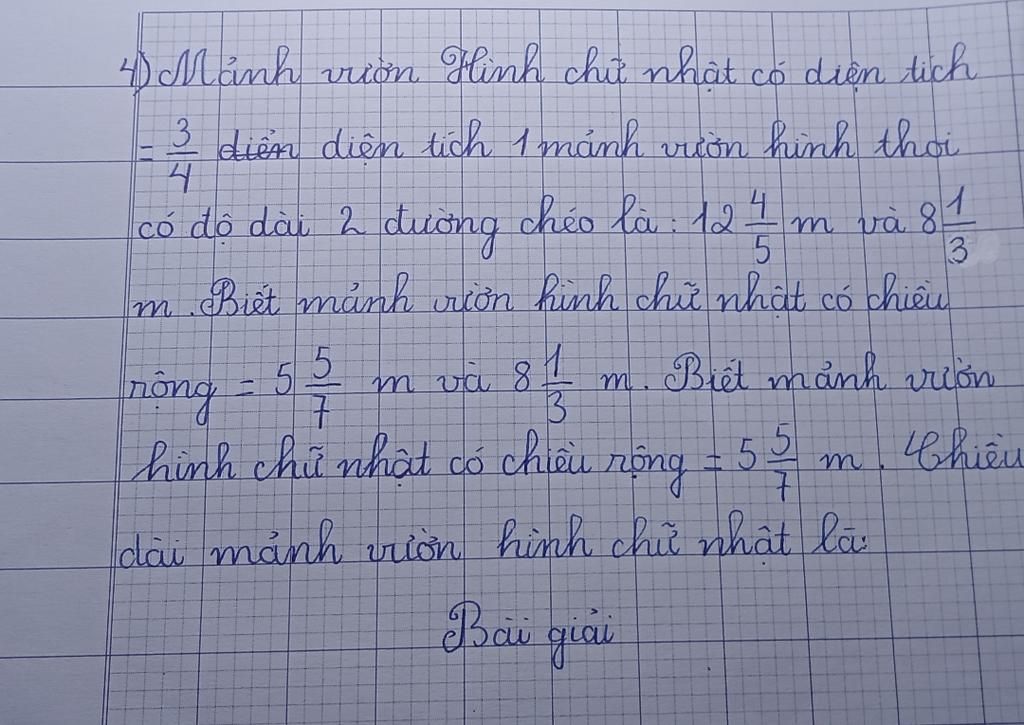 4) Mảnh vườn Hình chữ nhật có diện tích
= 3/4 diện diện tích 1 mảnh vườn hình thoi
có độ dài 2 đường chéo là: 12 4/5 m và 8 1/3
m. Biết mảnh vườn hình chữ nhật có chiều
rộng = 5 5/7 m và 8 1/3 m. Biết mảnh vườn
hình chữ nhật có chiều rộng = 5 5/7 m. Chiều
dài mảnh vườn hình chữ nhật là:
Bài giải